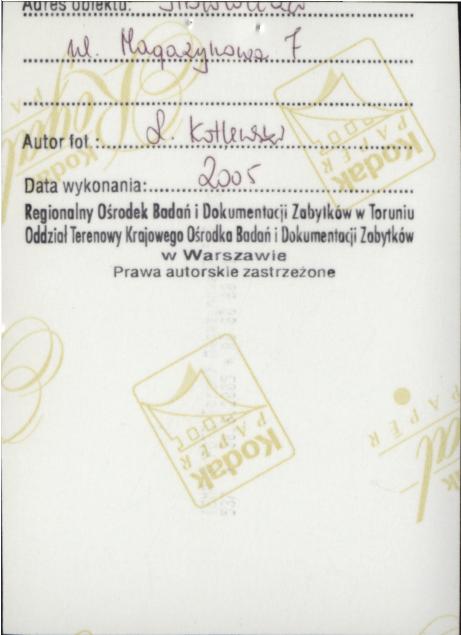 Adres obiektu:
ul. Magazynowa 7
Autor fot.: L. Kotlewski
Data wykonania: 2005
Regionalny Ośrodek Badań i Dokumentacji Zabytków w Toruniu
Oddział Terenowy Krajowego Ośrodka Badań i Dokumentacji Zabytków
w Warszawie
Prawa autorskie zastrzeżone
Kodak
PAPER
Royal
PAPER
Kodak
Kodak
PAPER
PAPER